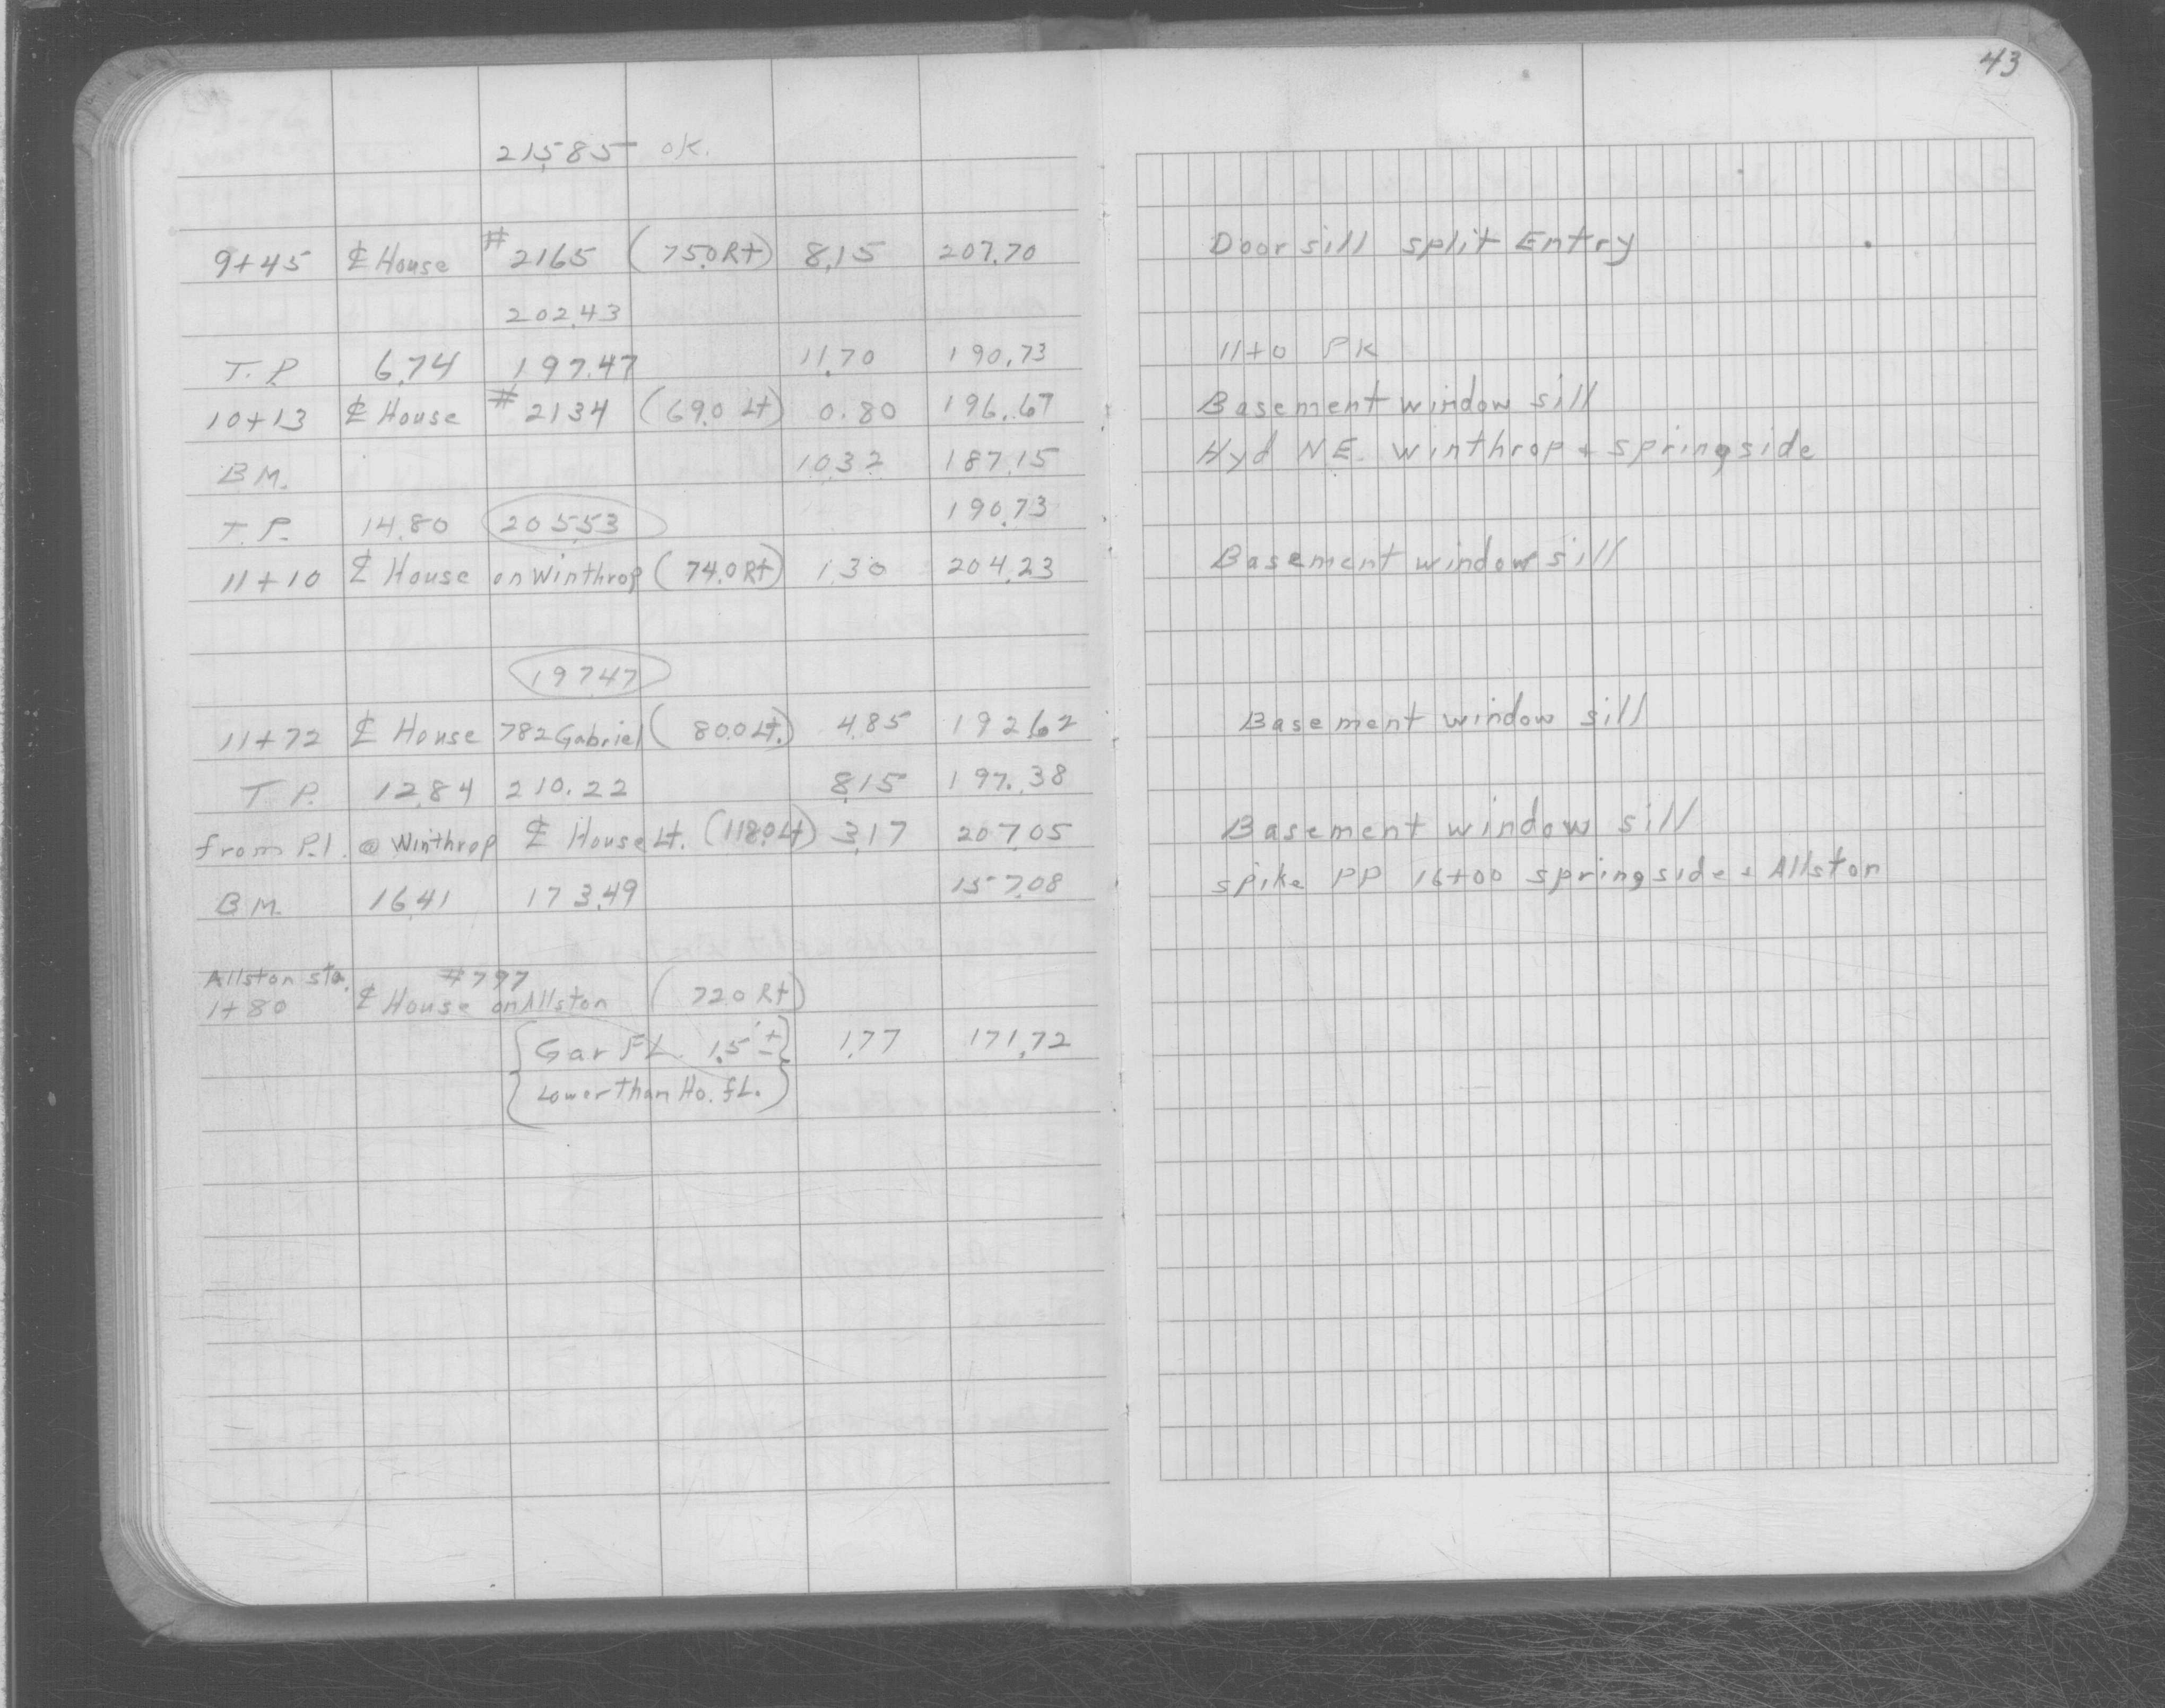 43
215.85 OK.
9+45 ℄ House #2165 (75.0 Rt) 8.15 207.70 Door sill split Entry
202.43
T.P. 6.74 197.47 11.70 190.73 11+0 PK
10+13 ℄ House #2134 (69.0 Lt) 0.80 196.67 Basement window sill
B.M. 10.32 187.15 Hyd N.E. Winthrop + springside
T.P. 14.80 205.53 190.73
11+10 ℄ House on Winthrop (74.0 Rt) 1.30 204.23 Basement window sill
197.47
11+72 ℄ House 782 Gabriel (80.0 Lt.) 4.85 192.62 Basement window sill
T.P. 12.84 210.22 8.15 197.38
from P.I. @ Winthrop ℄ House Lt. (118.0 Lt) 3.17 207.05 Basement window sill
B.M. 16.41 173.49 157.08 spike PP 16+00 springside + Allston
Allston sta. #797
1+80 ℄ House on Allston (72.0 Rt)
{Gar FL. 1.5' ±} 1.77 171.72
{Lower Than Ho. fL.}